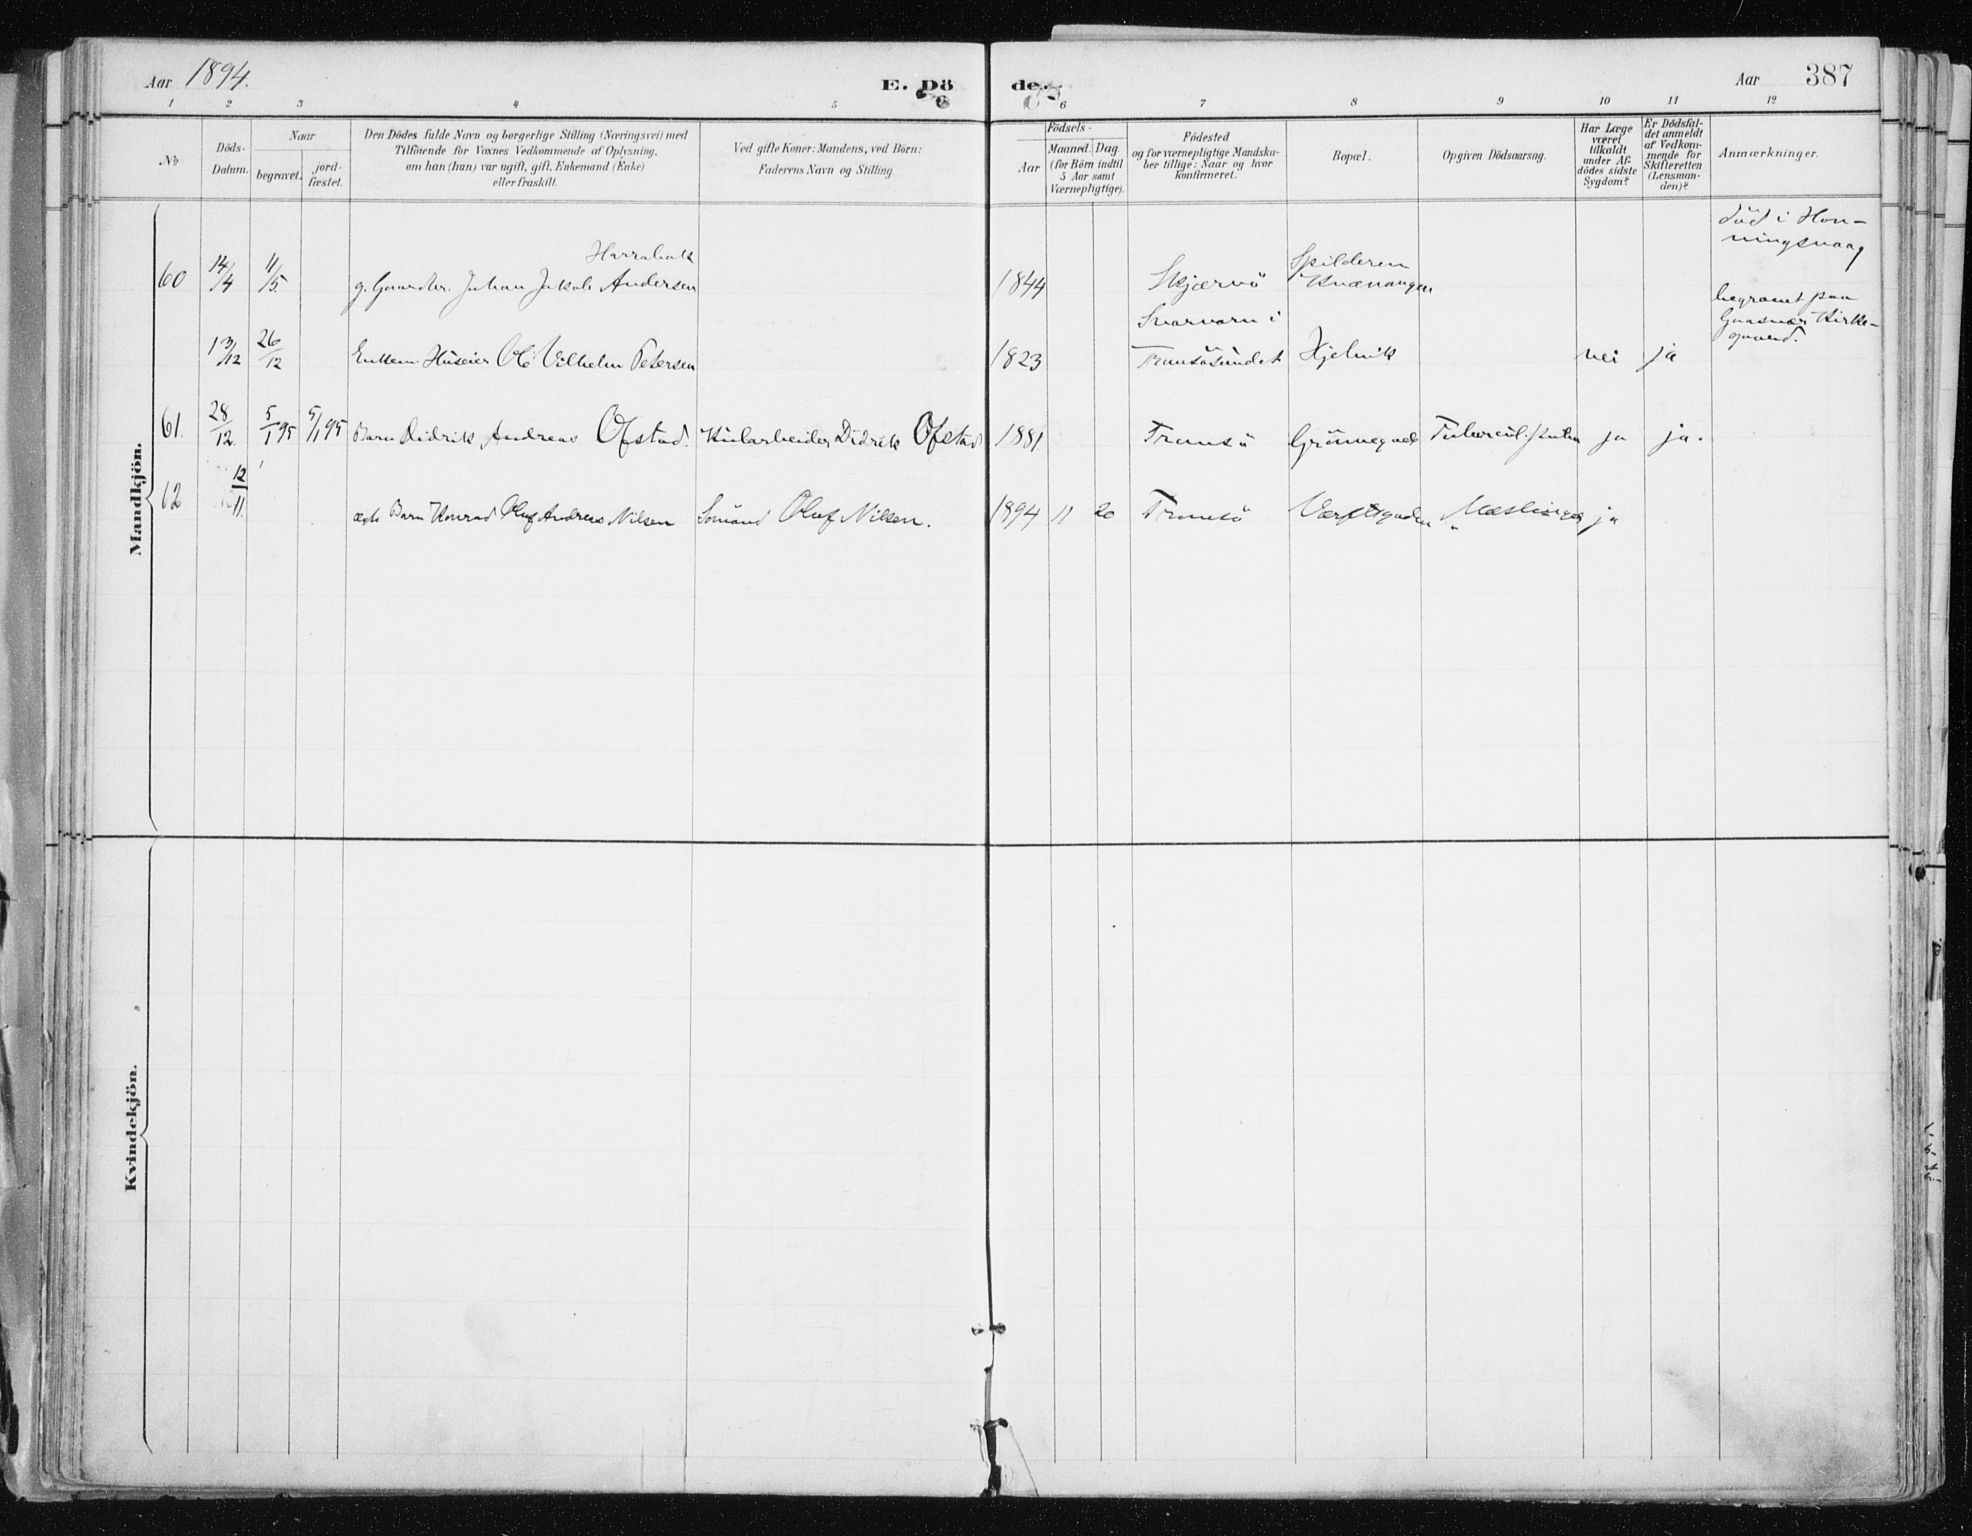 Aar 1894.
E. Dö
de.
Aar
387
1 2 3 4 5 6 7 8 9 10 11 12
No
Döds-
Datum.
Naar
begravet.
jord-
fæstet.
Den Dödes fulde Navn og borgerlige Stilling (Næringsvei) med
Tilföiende for Voxnes Vedkommende af Oplysning,
om han (hun) var ugift, gift, Enkemand (Enke)
eller fraskilt.
Ved gifte Koner: Mandens, ved Börn:
Faderens Navn og Stilling.
Födsels-
Aar
Maaned.
Dag.
(for Börn indtil
5 Aar samt
Værnepligtige).
Födested
og for værnepligtige Mandska-
ber tillige: Naar og hvor
konfirmeret.
Bopæl.
Opgiven Dödsaarsag.
Har Læge
været
tilkaldt
under Af-
dödes sidste
Sygdom?
Er Dödsfal-
det anmeldt
af Vedkom-
mende for
Skifteretten
(Lensman-
den)?
Anmærkninger.
Mandkjön.
död i Hon-
ningsvaag
60 14/4 11/5. g. Gaardbr. Johan Jakob Andersen 1844 Skjærvö Spilderen
Kvænangen
begravet paa
Kirke-
gaard.
13/12 26/12 Enkem. Huseier Ole Vilhelm Petersen 1823 i
Tromsösundet nei ja
61. 28/12. 5/1 95 5/1 95 Barn Didrik Andreas Ofstad. Kularbeider Didrik Ofstad 1881. Tromsö Grönnegad ja ja.
62 12/11. Barn Konrad Oluf Andreas Nilsen Sömand Oluf Nilsen. 1894 11 20 Tromsö Værftsgaden Mæslinger ja
Kvindekjön.